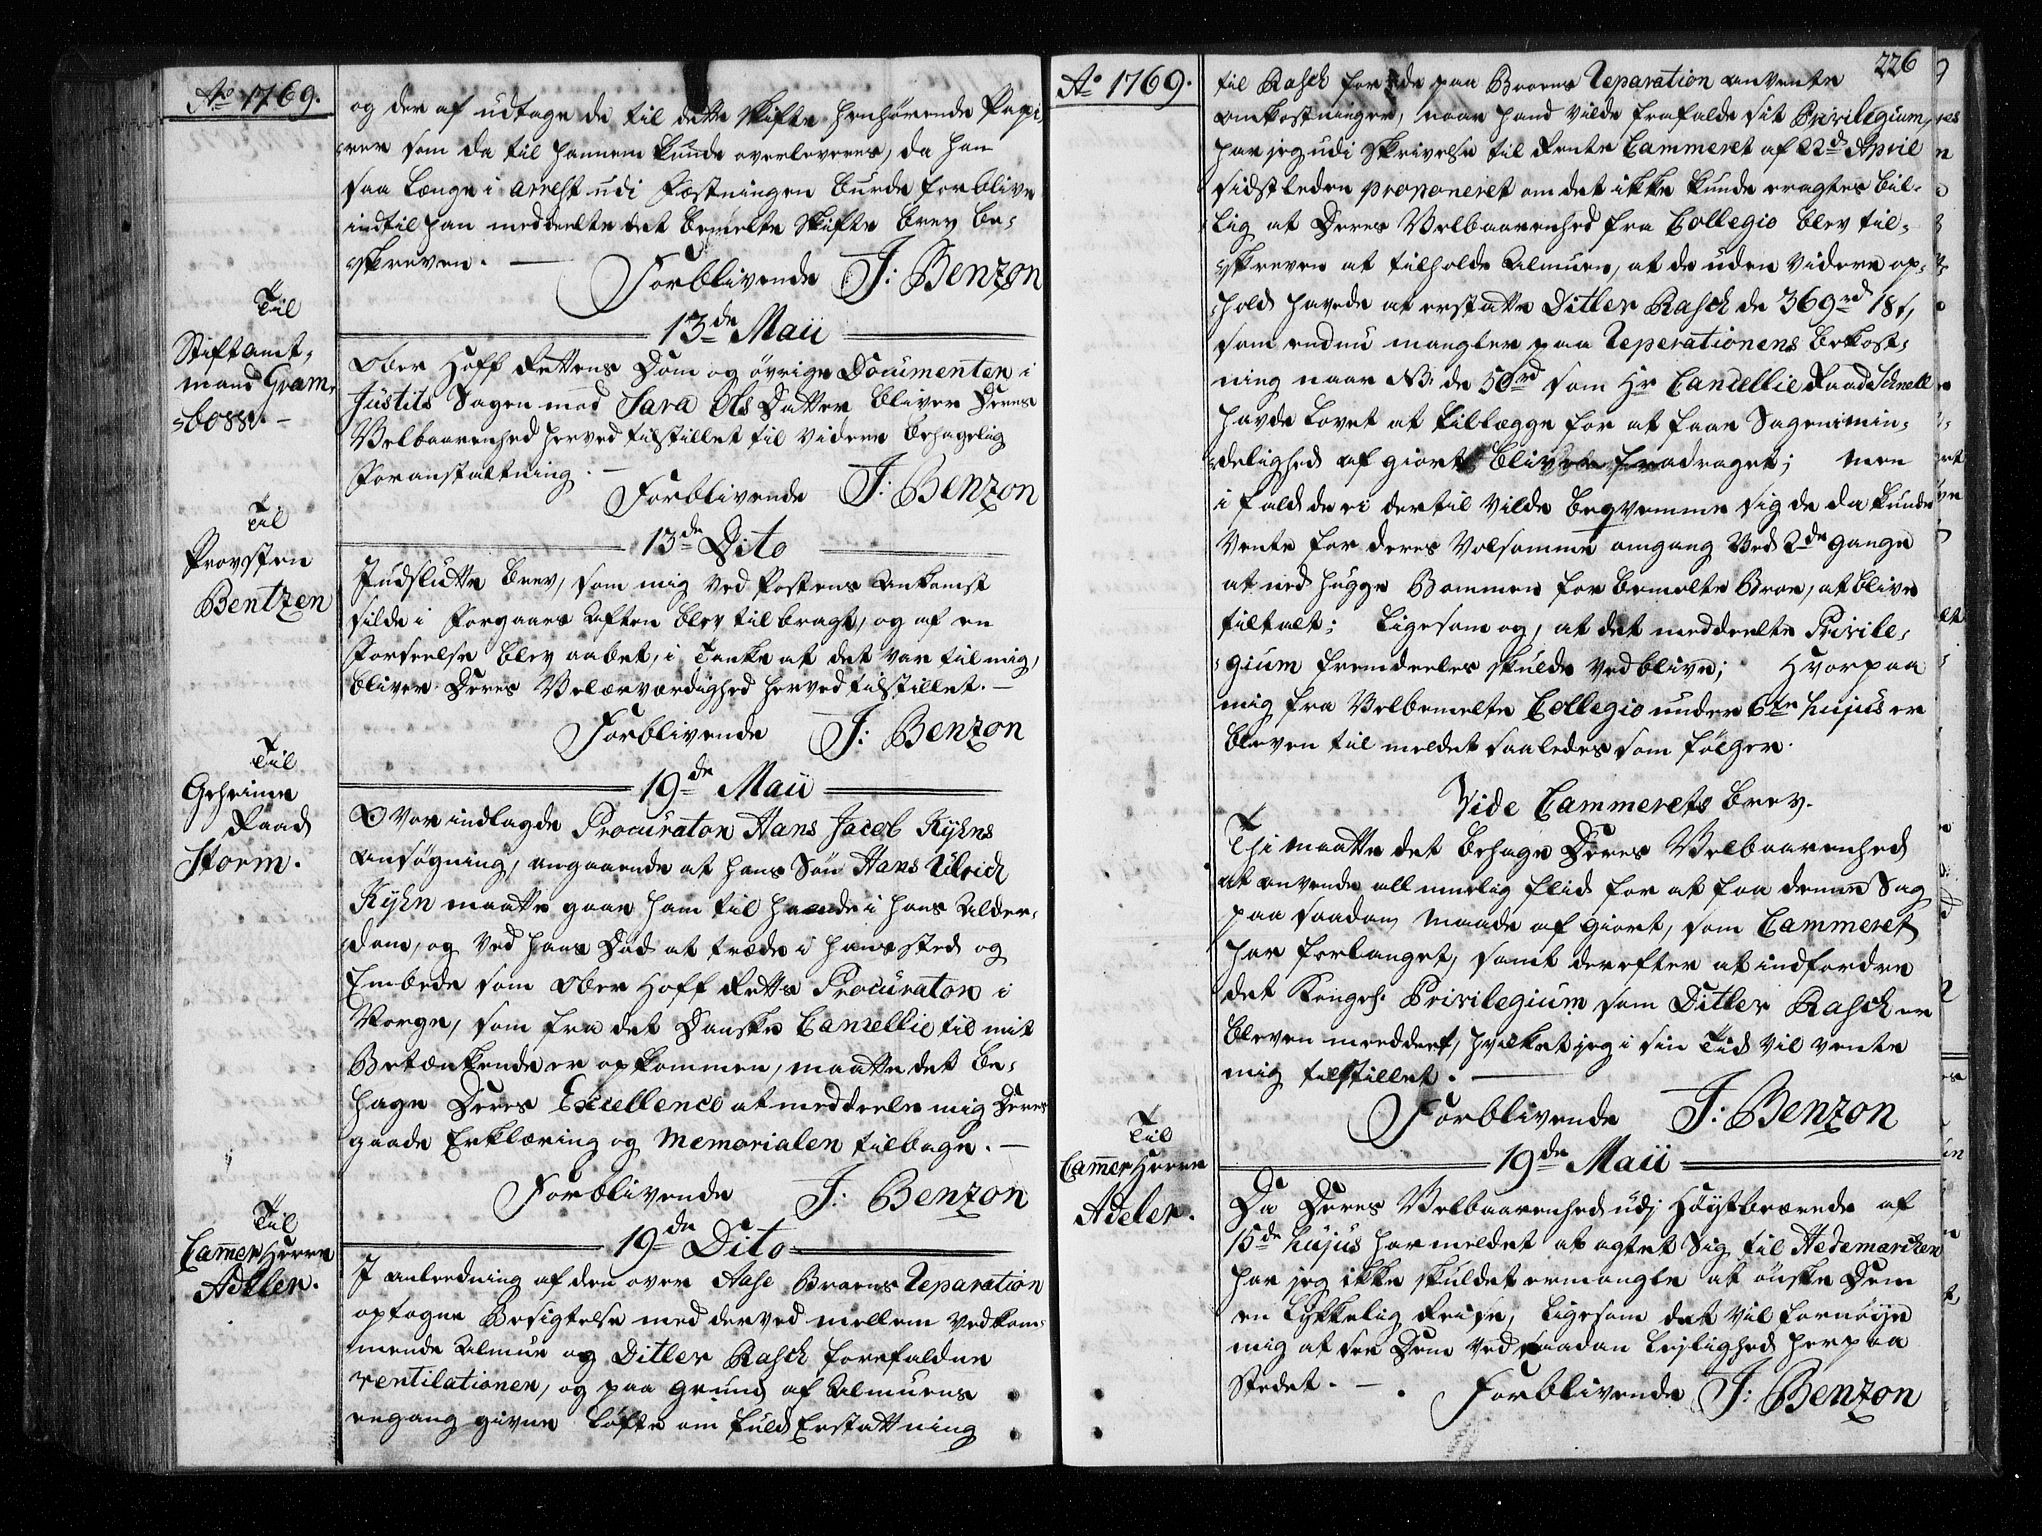 Ao 1769.
og der af udtage de til dette Skifte henhørende Papi,
rer som da til hannem kunde overleveres, da han
saa længe i Arrest udi Fæstningen burde forblive
indtil han meddeelte det bemelte Skifte brev be,
skreven.
Forblivende J: Benzon
13de Maii
Til
Stiftamt,
mand Gram,
bosse. –
Ober Hoff Rettens Dom og øvrige Documenter i
Justits Sagen mod Sara Ols Datter bliver Deres
Velbaarenhed herved tilstillet til videre behagelig
Foranstaltning. –
Forblivende J: Benzon
13de Dito
Til
Provsten
Bentzen
Indslutte brev, som mig ved Postens Ankomst
silde i Forgaars Aften blev tilbragt, og af en
Forseelse blev aabet, i Tanke at det var til mig,
bliver Deres Velærværdighed herved tilstillet. –
Forblivende J: Benzon
19de Maii
Til
Geheime
Raad
Storm.
Over indlagde Procurator Hans Jacob Kyhns
ansøgning, angaaende at hans Søn Hans Ulrich
Kyhn maatte gaae ham til haande i hans Alder,
dom, og ved hans Død at træde i hans sted og
Embede som Ober Hoff Retts Procurator i
Norge, som fra det Danske Cancellie til mit
Betænkende er opkommen, maatte det be,
hage Deres Excellence at meddeele mig Deres
gode Erklæring og Memorialen tilbage. –
Forblivende J: Benzon
19de Dito
Til
Camerherre
Adeler.
I anledning af den over Aase Broens Reparation
optagne Besigtelse med derved mellem vedkom,
mende Almue og Ditler Rasch forefaldne
ventilationer, og paa grund af Almuens
engang givne Løfte om fuld Erstattning
Ao 1769.
226
til Rasch for de paa Broens Reparation anvente
omkostninger, naar hand vilde frafalde sit Privilegium,
har jeg udi skrivelse til Rente Cammeret af 22de April
sidstleden proponeret om det ikke kunde eragtes bil,
lig at Deres Velbaarenhed fra Collegio blev til,
skreven at tilholde Almuen, at de uden videre op,
hold havde at erstatte Ditler Rasch de 369rd 18s,
som endnu mangler paa Reperationens bekost,
ning naar NB. de 50rd som Hr Cancellie Raad Schnell
havde lovet at tillægge for at faae Sagen i min,
delighed af giort bliver fradraget; men
i fald de ei dertil vilde beqvemme sig de da kunde
vente for deres volsomme omgang ved 2de gange
at ned hugge Bommen for bemelte Broe, at blive
tiltalt; ligesom og, at det meddeelte Privile,
gium fremdeeles skulde vedblive; Hvorpaa
mig fra Velbemelte Collegio under 6te hujus er
bleven til meldet saaledes som følger.
Vide Cammerets brev.
Thi maatte det behage Deres Velbaarenhed
at anvende all muelig flid for at faa denne Sag
paa saadan maade af giort, som Cammeret
har forlanget, samt derefter at indfordre
det Kongel. Privilegium som Ditler Rasch er
bleven meddeelt, hvilket jeg i sin Tid vil vente
mig tilstillet.
Forblivende J: Benzon
19de Maii
Til
Camerherre
Adeler.
Da Deres Velbaarenhed udj Høystbeærede af
15de hujus har meldet at agtet Sig til Hedemarchen
har jeg ikke skuldet ermangle at ønske Dem
en lykkelig Reise, ligesom det vil fornøye
mig at see Dem ved saadan lejlighed her paa
Stedet. –
Forblivende J: Benzon